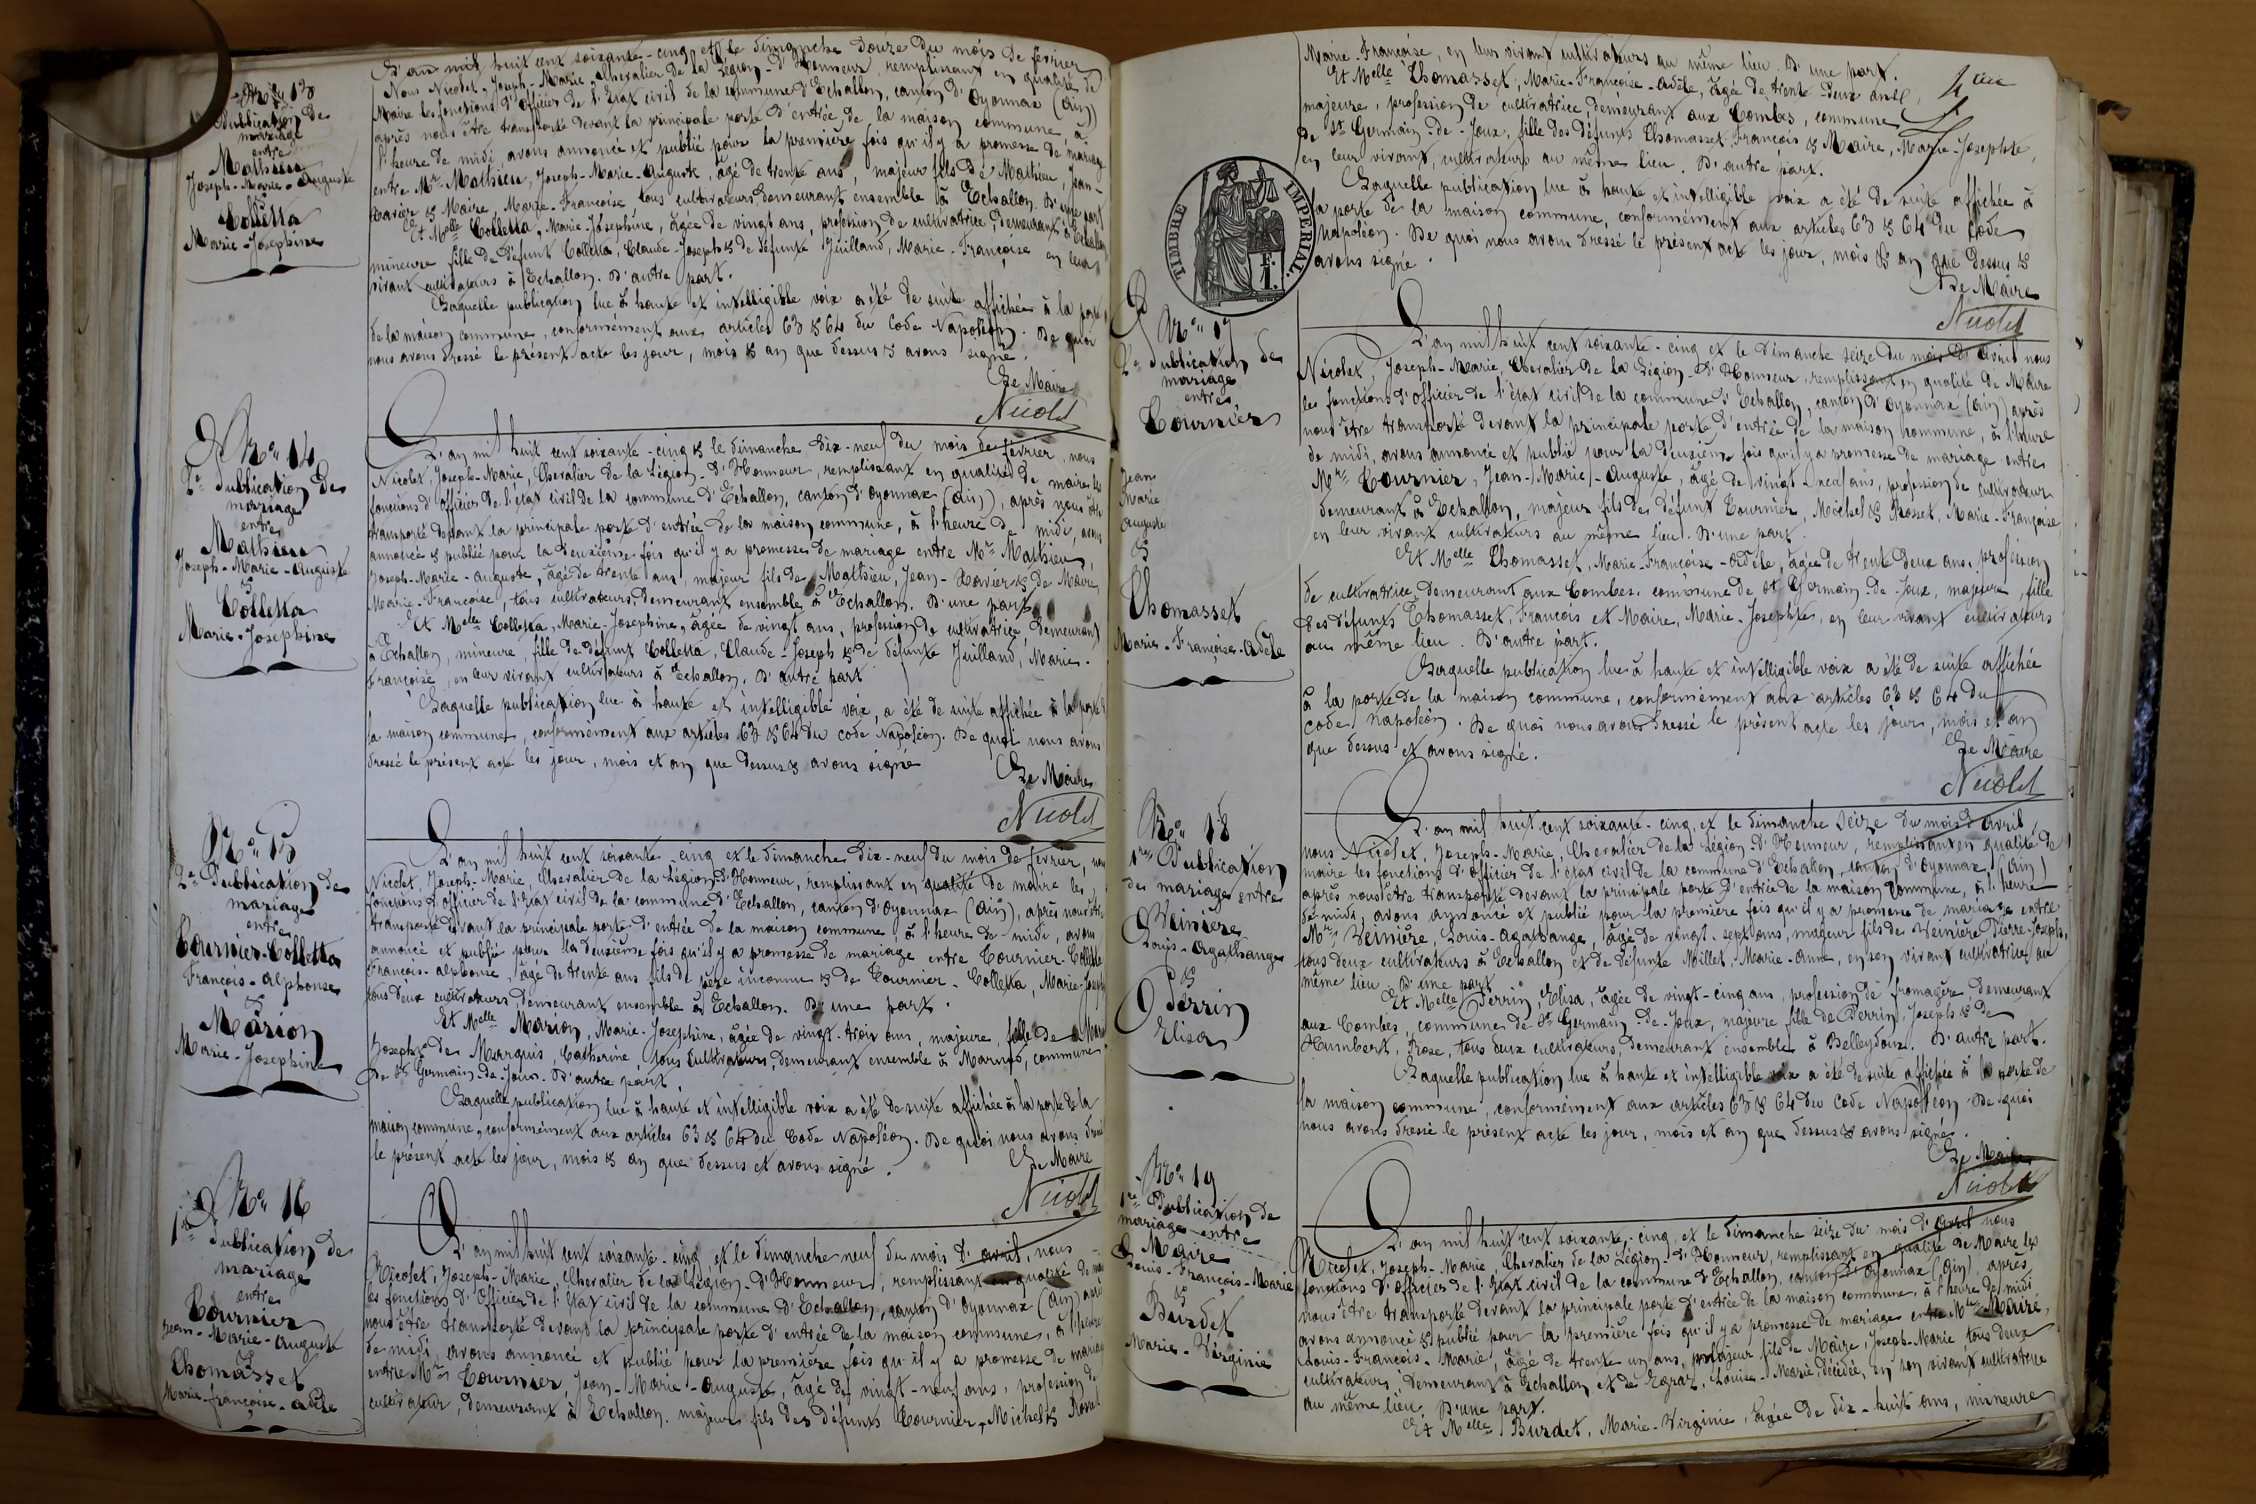 N° 13
Publication de
mariage
entre
Mathieu
Joseph-Marie-Auguste
&
Colletta
Marie-Josephine
L'an mil huit cent soixante-cinq et le dimanche douze du mois de février
Nous Nicolet, Joseph-Marie, Chevalier de la Légion-d'Honneur, remplissant en qualité de
Maire les fonctions d'Officier de l'Etat civil de la commune d'Echallon, canton d'Oyonnax (Ain)
après nous être transporté devant la principale porte d'entrée de la maison commune, à
l'heure de midi, avons annoncé et publié pour la première fois qu'il y a promesse de mariage
entre Mr Mathieu, Joseph-Marie-Auguste, âgé de trente ans, majeur fils de Mathieu, Jean-
Xavier & Maire, Marie-Françoise tous cultivateurs demeurant ensemble à Echallon. D'une part
Et Melle Colletta, Marie-Joséphine, âgée de vingt ans, profession de cultivatrice demeurant à Echallon
mineure fille de défunt Colletta, Claude-Joseph & de défunte Juilland, Marie-Françoise en leur
vivant cultivateurs à Echallon. D'autre part.
Laquelle publication lue à haute et intelligible voix a été de suite affichée à la porte
de la maison commune, conformément aux articles 63 & 64 du Code Napoléon. De quoi
nous avons dressé le présent acte les jour, mois & an que dessus & avons signé.
Le Maire
Nicolet
N° 14
2e Publication de
mariage
entre
Mathieu
Joseph-Marie-Auguste
&
Colletta
Marie-Josephine
L'an mil huit cent soixante-cinq & le dimanche dix-neuf du mois de février, nous
Nicolet, Joseph-Marie, Chevalier de la Légion-d'Honneur, remplissant en qualité de maire les
fonctions d'officier de l'état civil de la commune d'Echallon, canton d'Oyonnax (Ain), après nous être
transporté devant la principale porte d'entrée de la maison commune, à l'heure de midi, avons
annoncé & publié pour la deuxième fois qu'il y a promesse de mariage entre Mr Mathieu
Joseph-Marie-Auguste, âgé de trente ans, majeur fils de Mathieu, Jean-Xavier & de Maire
Marie-Françoise, tous cultivateurs, demeurant ensemble à Echallon. D'une part
Et Melle Colletta, Marie-Josephine, âgée de vingt ans, profession de cultivatrice demeurant
à Echallon, mineure, fille de défunt Colletta, Claude-Joseph & de défunte Juilland, Marie-
Françoise, en leur vivant cultivateurs à Echallon. D'autre part
Laquelle publication lue à haute et intelligible voix, a été de suite affichée à la porte de
la maison commune, conformément aux articles 63 & 64 du code Napoléon. De quoi nous avons
dressé le présent acte les jour, mois et an que dessus & avons signé
Le Maire
Nicolet
N° 15
2e Publication de
mariage
entre
Tournier-Colletta
François-Alphonse
&
Marion
Marie-Josephine
L'an mil huit cent soixante-cinq et le dimanche dix-neuf du mois de février, nous
Nicolet, Joseph-Marie, Chevalier de la Légion d'Honneur, remplissant en qualité de maire les
fonctions d'officier de l'Etat civil de la commune d'Echallon, canton d'Oyonnax (Ain), après nous être
transporté devant la principale porte d'entrée de la maison commune, à l'heure de midi, avons
annoncé et publié pour la deuxième fois qu'il y a promesse de mariage entre Tournier-Colletta
François-Alphonse, âgé de trente ans fils de père inconnu & de Tournier-Colletta, Marie-Joseph
tous deux cultivateurs demeurant ensemble à Echallon. D'une part.
Et Melle Marion, Marie-Josephine, âgée de vingt-trois ans, majeure, fille de Marion
Joseph & de Marquis, Catherine tous cultivateurs, demeurant ensemble à Marnod, commune
de St Germain-de-Joux. D'autre part.
Laquelle publication lue à haute et intelligible voix a été de suite affichée à la porte de la
maison commune, conformément aux articles 63 & 64 du Code Napoléon. De quoi nous avons dressé
le présent acte les jour, mois & an que dessus et avons signé.
Le Maire
Nicolet
N° 16
1re Publication de
mariage
entre
Tournier
Jean-Marie-Auguste
&
Thomasset
Marie-françoise-adèle
L'an mil huit cent soixante-cinq et le dimanche neuf du mois d'avril, nous
Nicolet, Joseph-Marie, Chevalier de la Légion-d'Honneur, remplissant en qualité de maire
les fonctions d'Officier de l'Etat civil de la commune d'Echallon, canton d'Oyonnax (Ain) après
nous être transporté devant la principale porte d'entrée de la maison commune, à l'heure
de midi, avons annoncé et publié pour la première fois qu'il y a promesse de mariage
entre Mr Tournier, Jean-Marie-Auguste, âgé de vingt-neuf ans, profession de
cultivateur, demeurant à Echallon, majeur fils des défunts Tournier, Michel & Rosset
Marie-Françoise, en leur vivant cultivateurs au même lieu. D'une part.
Et Melle Thomasset, Marie-Françoise-Adèle, âgée de trente deux ans,
majeure, profession de cultivatrice, demeurant aux Combes, commune
de St Germain-de-Joux, fille des défunts Thomasset François & Maire, Marie-Josephte,
en leur vivant, cultivateurs au même lieu. D'autre part.
Laquelle publication lue à haute et intelligible voix a été de suite affichée à
la porte de la maison commune, conformément aux articles 63 & 64 du Code
Napoléon. De quoi nous avons dressé le présent acte les jour, mois & an que dessus &
avons signé.
Le Maire
Nicolet
TIMBRE IMPERIAL.
F.
1.
N° 17
2e Publication de
mariage
entre
Tournier
Jean
Marie
Auguste
&
Thomasset
Marie-Françoise-Adèle
L'an mil huit cent soixante-cinq et le dimanche seize du mois d'avril nous
Nicolet, Joseph-Marie, Chevalier de la Légion-d'Honneur, remplissant en qualité de Maire
les fonctions d'officier de l'état civil de la commune d'Echallon, canton d'Oyonnax (Ain) après
nous être transporté devant la principale porte d'entrée de la maison commune, à l'heure
de midi, avons annoncé et publié pour la deuxième fois qu'il y a promesse de mariage entre
Mr Tournier, Jean-Marie-Auguste, âgé de vingt neuf ans, profession de cultivateur
demeurant à Echallon, majeur fils des défunt Tournier, Michel & Rosset, Marie-Françoise
en leur vivant cultivateurs au même lieu. D'une part
Et Melle Thomasset, Marie-Françoise-Adèle, âgée de trente deux ans, profession
de cultivatrice demeurant aux Combes, commune de St Germain-de-Joux, majeure, fille
des défunts Thomasset, François et Maire, Marie-Josephte, en leur vivant cultivateurs
au même lieu. D'autre part.
Laquelle publication lue à haute et intelligible voix a été de suite affichée
à la porte de la maison commune, conformément aux articles 63 & 64 du
Code Napoléon. De quoi nous avons dressé le présent acte les jour, mois et an
que dessus et avons signé.
Le Maire
Nicolet
N° 18
1re Publication
de mariage entre
Veinière
Louis-Agathange
&
Perrin
Elisa
L'an mil huit cent soixante-cinq, et le dimanche seize du mois d'avril
nous Nicolet, Joseph-Marie, Chevalier de la Légion d'Honneur, remplissant en qualité de
maire les fonctions d'officier de l'état civil de la commune d'Echallon, canton d'Oyonnax (Ain)
après nous être transporté devant la principale porte d'entrée de la maison commune, à l'heure
de midi, avons annoncé et publié pour la première fois qu'il y a promesse de mariage entre
Mr Veinière, Louis-Agathange, âgé de vingt-sept ans, majeur fils de Veinière Pierre-Joseph,
tous deux cultivateurs à Echallon et de défunte Millet, Marie-Anne, en son vivant cultivatrice au
même lieu. D'une part
Et Melle Perrin, Elisa, âgée de vingt-cinq ans, profession de fromagère, demeurant
aux Combes, commune de St Germain-de-Joux, majeure fille de Perrin, Joseph & de
Humbert, Rose, tous deux cultivateurs, demeurant ensemble à Belleydoux. D'autre part.
Laquelle publication lue à haute et intelligible voix a été de suite affichée à la porte de
la maison commune, conformément aux articles 63 & 64 du Code Napoléon. De quoi
nous avons dressé le présent acte les jour, mois et an que dessus & avons signé.
Le Maire
Nicolet
N° 19
1re Publication de
mariage entre
Maire
Louis-François-Marie
&
Burdet
Marie-Virginie
L'an mil huit cent soixante-cinq, et le dimanche seize du mois d'avril nous
Nicolet, Joseph-Marie, Chevalier de la Légion-d'Honneur, remplissant en qualité de Maire les
fonctions d'Officier de l'Etat civil de la commune d'Echallon, canton d'Oyonnax (Ain), après
nous être transporté devant la principale porte d'entrée de la maison commune, à l'heure de midi
avons annoncé & publié pour la première fois qu'il y a promesse de mariage entre Mr Maire,
Louis-François-Marie, âgé de trente un ans, majeur fils de Maire, Joseph-Marie, tous deux
cultivateurs, demeurant à Echallon et de Egraz, Louise-Marie, décédée, en son vivant cultivatrice
au même lieu. D'une part.
Et Melle Burdet, Marie-Virginie, âgée de dix-huit ans, mineure